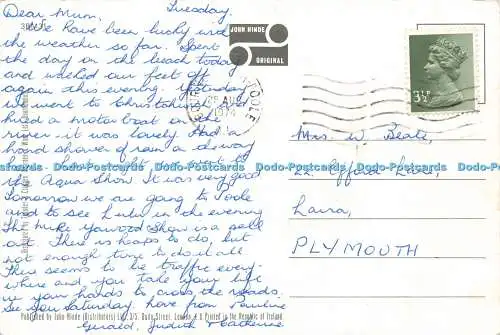 Dear Mum, Tuesday.
We have been lucky with
the weather so far. Spent
the day on the beach today
and walked our feet off
again this evening. Yesterday
we went to Christchurch and
hired a motor boat on the
river - it was lovely. Had a
hard shower of rain on a
way home. Last night, went to
the Aqua Show. It was very good
Tomorrow we are going to Poole
and to see Lulu in the evening
The Mike Yarwood Show is a sell
out. There is heaps to do, but
not enough time to do it all
There seems to be traffic every-
where and you take your life
in your hands to cross the roads.
See you Saturday. Love from Pauline
Gerald, Judith & Catherine
JOHN HINDE
ORIGINAL
POOLE
AUG
1974
3½P
Mrs. W. Beale,
22, Offord Place,
Laira,
PLYMOUTH
Dodo-Postcards.com Dodo-Postcards.com Dodo-Postcards.com Dodo-Postcards.com
Published by John Hinde (Distributors) Ltd., 3/5, Duke Street, London, W.1. Printed in the Republic of Ireland